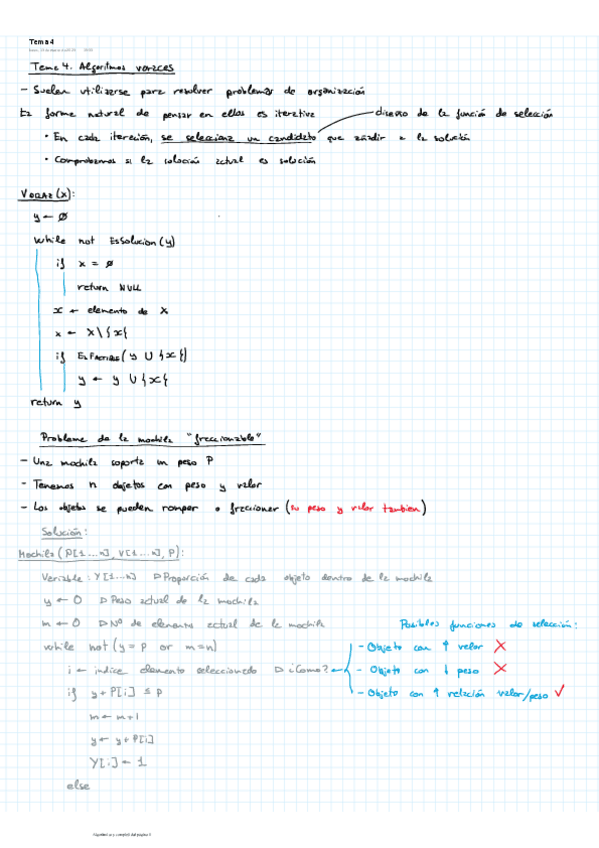 Tema 4
Tema 4. Algoritmos voraces
- Suelen utilizarse para resolver problemas de organización
La forme natural de pensar en ellos es iterativa
diseño de la función de selección
• En cada iteración, se selecciona un candidato que añadir a la solución
• Comprobamos si la solución actual es solución
VORAZ(X):
y ← ∅
while not EsSolucion(y)
if x = ∅
return NULL
x ← elemento de X
x ← X\{x}
if EsFactible(y ∪ {x})
y ← y ∪ {x}
return y
Probleme de la mochila "fraccionable"
- Una mochila soporta un peso P
- Tenemos n objetos con peso y valor
- Los objetos se pueden romper o fraccionar (su peso y valor tambien)
Solución:
Mochila(P[1...n], V[1...n], P):
Variable: Y[1...n] ▷ Proporción de cada objeto dentro de la mochila
y ← 0 ▷ Peso actual de la mochila
m ← 0 ▷ Nº de elementos actual de la mochila
Posibles funciones de selección:
while not (y = P or m = n)
- Objeto con ↑ valor ✗
i ← indice elemento seleccionado ▷ ¿Como? ←
- Objeto con ↓ peso ✗
if y + P[i] ≤ P
- Objeto con ↑ relación valor/peso ✓
m ← m + 1
y ← y + P[i]
Y[i] ← 1
else